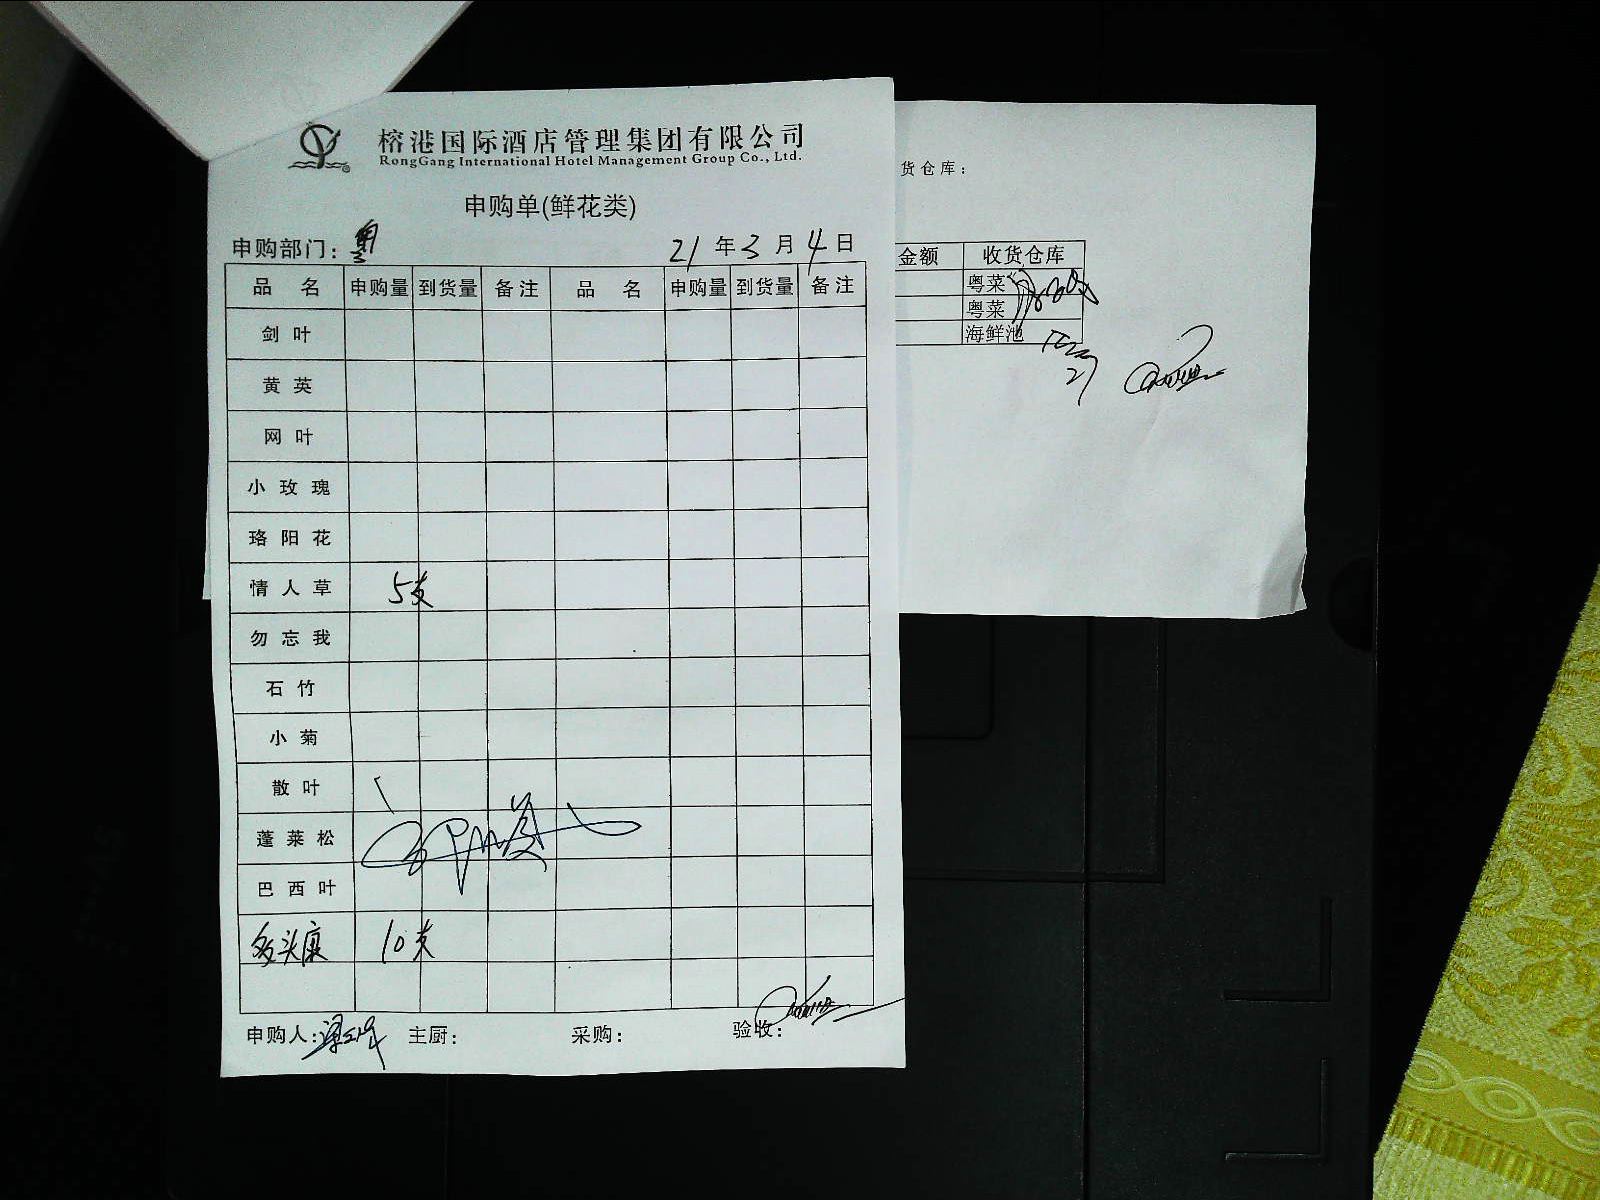 榕港国际酒店管理集团有限公司
RongGang International Hotel Management Group Co., Ltd.
申购单(鲜花类)
申购部门: 粤
21年3月4日
品名 申购量 到货量 备注 品名 申购量 到货量 备注
剑叶
黄英
网叶
小玫瑰
珞阳花
情人草 5支
勿忘我
石竹
小菊
散叶
蓬莱松
巴西叶
多头康 10支
申购人: 主厨: 采购: 验收:
货仓库:
金额 收货仓库
粤菜
粤菜
海鲜池